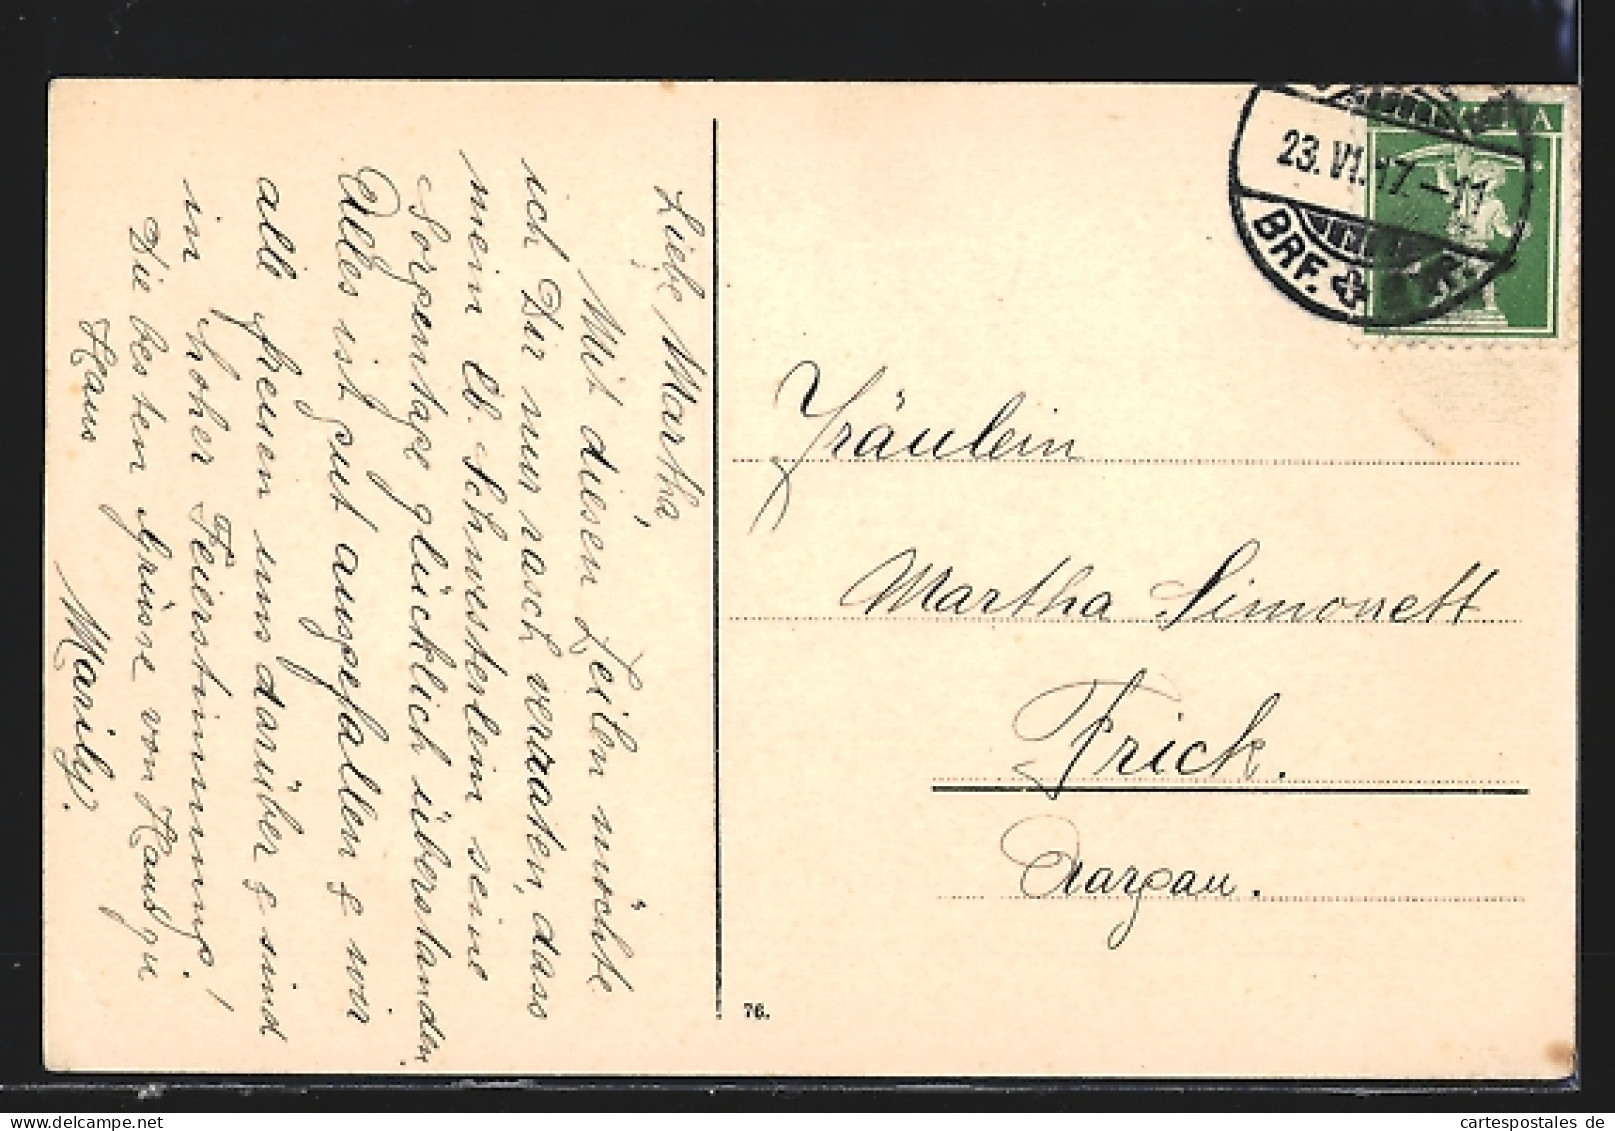 Liebe Martha,
Mit diesen Zeilen möchte
ich Dir nur rasch verraten, dass
mein lb. Schwesterlein seine
Sorgentage glücklich überstanden.
Alles ist gut ausgefallen & wir
alle freuen uns darüber & sind
in hoher Feierstimmung!
Die besten Grüsse von Haus zu
Haus
Marily.
23. VI. 17. – 11
BRF.
Fräulein
Martha Simonett
Frick.
Aargau.
76.
cartespostales de